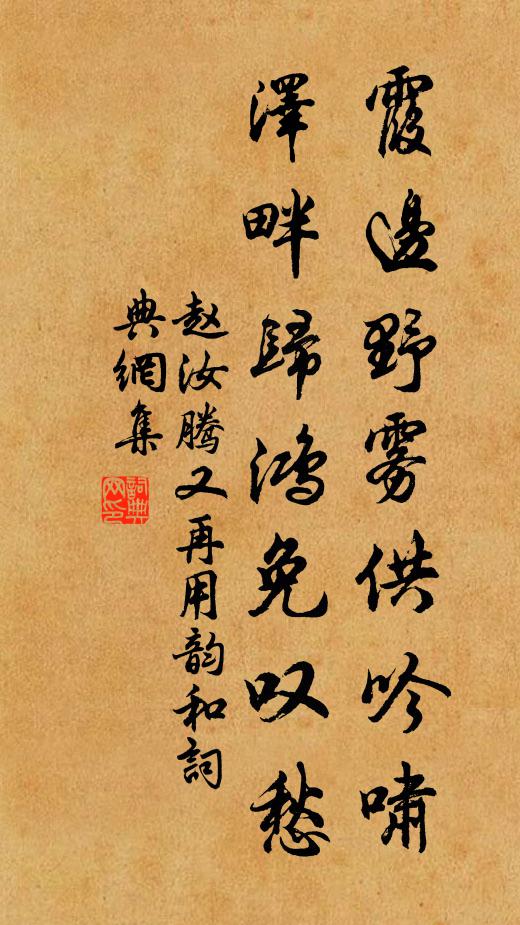 霞邊野雾供吟嘯
澤畔歸鴻免叹愁
赵汝腾又再用韵和詞
典網集
詞典
网印